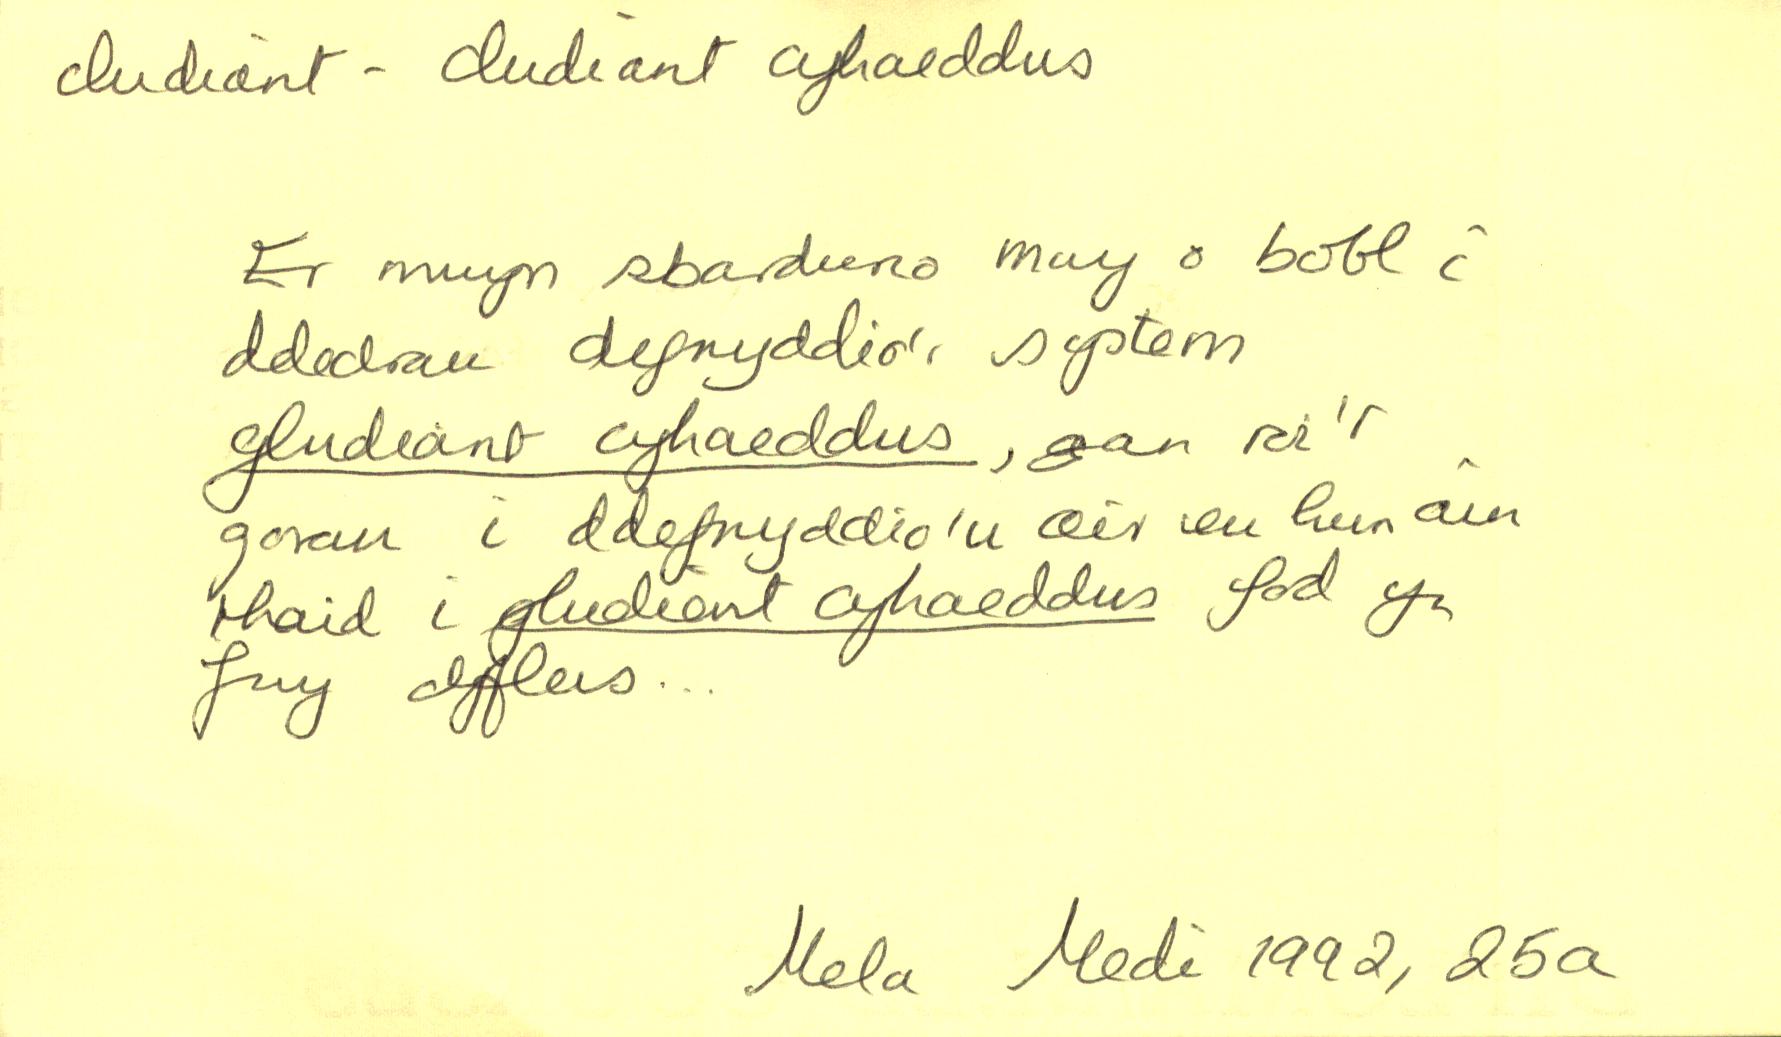 cludiant - cludiant cyhaeddus
Er mwyn sbarduno mwy o bobl i
ddechrau defnyddio'r system
gludiant cyhaeddus, gan
gorau i ddefnyddio'u ceir eu hunain
rhaid i gludiant cyhaeddus fod yn
fwy cyfleus...
Mela Medi 1992, 25a